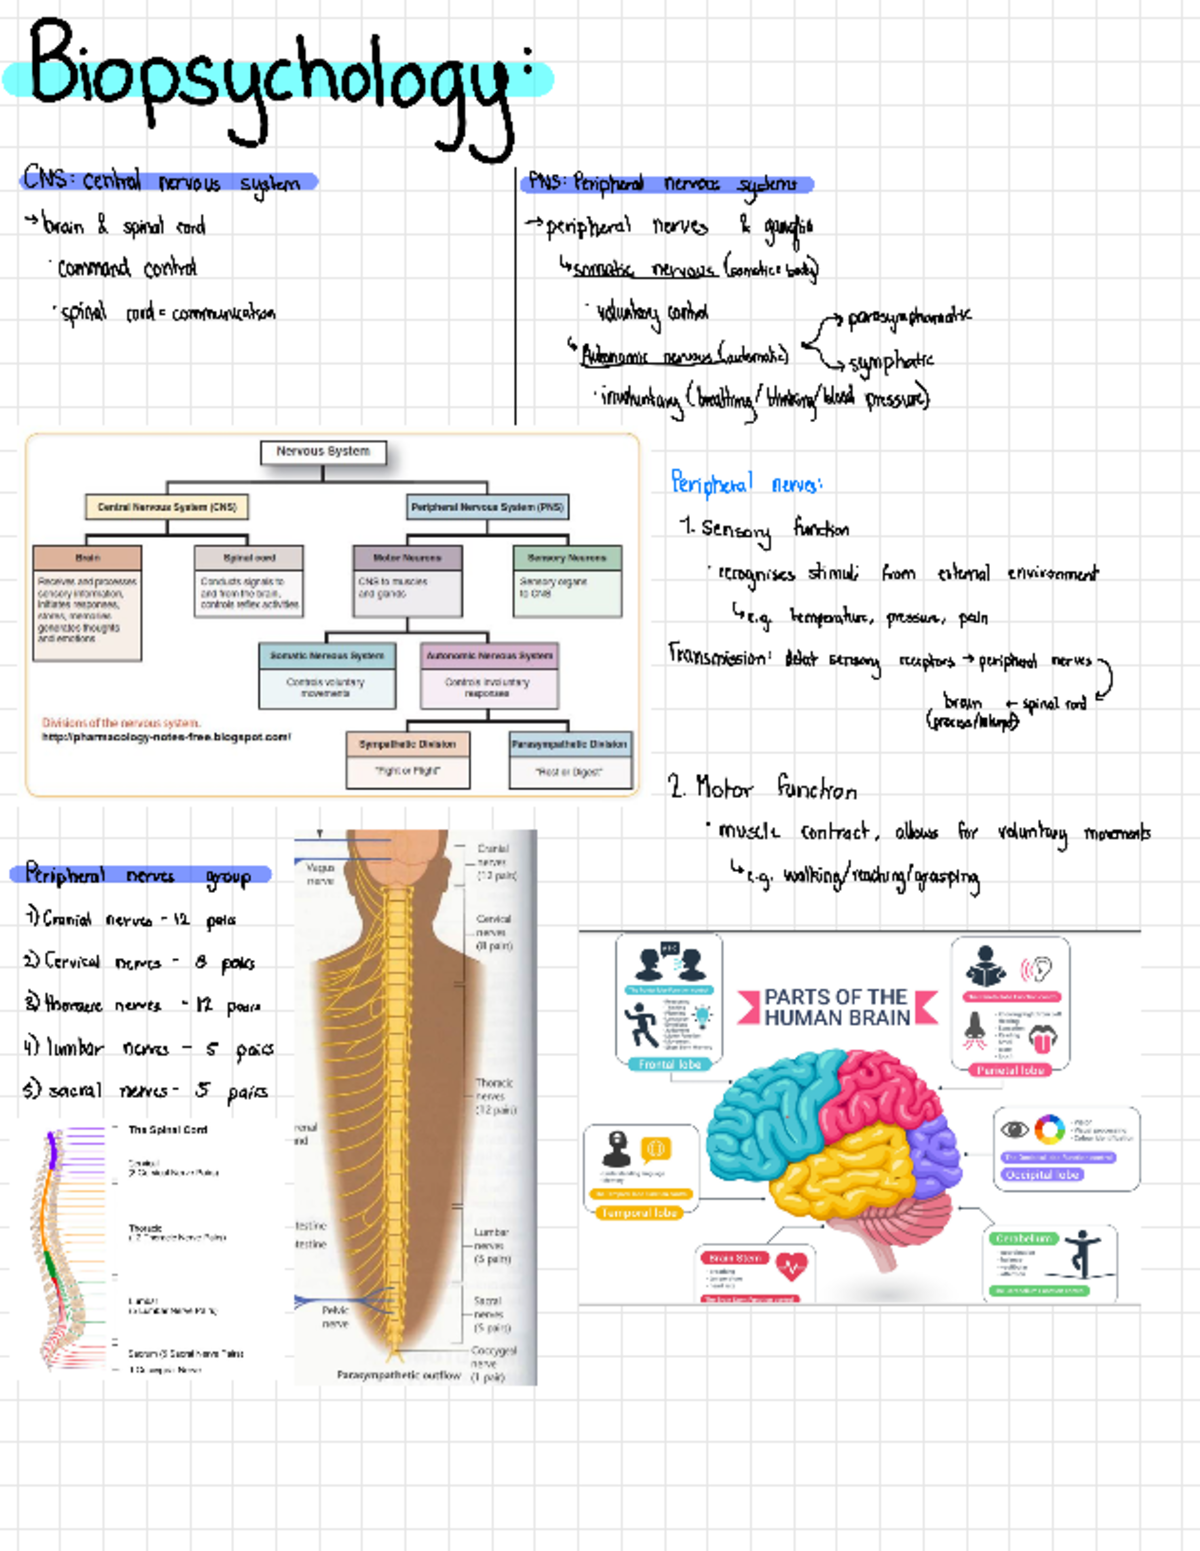 Biopsychology:
CNS: central nervous system
→ brain & spinal cord
· command control
· spinal cord = communication
PNS: Peripheral nervous systems
→ peripheral nerves & ganglia
↳ somatic nervous (somatic = body)
· voluntary control
↳ Autonomic nervous (automatic)
→ parasymphamatic
→ symphatic
· involuntary (breathing/blinking/blood pressure)
Nervous System
Central Nervous System (CNS)
Peripheral Nervous System (PNS)
Brain
Receives and processes
sensory information,
initiates responses,
stores, memories
generates thoughts
and emotions
Spinal cord
Conducts signals to
and from the brain,
controls reflex activities
Motor Neurons
CNS to muscles
and glands
Sensory Neurons
Sensory organs
to CNS
Somatic Nervous System
Controls voluntary
movements
Autonomic Nervous System
Controls involuntary
responses
Sympathetic Division
"Fight or Flight"
Parasympathetic Division
"Rest or Digest"
Divisions of the nervous system.
http://pharmacology-notes-free.blogspot.com/
Peripheral nerves:
1. Sensory function
· recognises stimuli from external environment
↳ e.g. temperature, pressure, pain
Transmission: sensory receptors → peripheral nerves
brain ← spinal cord
2. Motor function
· muscle contract, allows for voluntary movements
↳ e.g. walking/reaching/grasping
Peripheral nerves group
1) Cranial nerves - 12 pairs
2) Cervical nerves - 8 pairs
3) thoracic nerves - 12 pairs
4) lumbar nerves - 5 pairs
5) sacral nerves - 5 pairs
The Spinal Cord
Cervical
Cervical Nerve Pairs)
Thoracic
(12 Thoracic Nerve Pairs)
Lumbar
(5 Lumbar Nerve Pairs)
Sacrum (5 Sacral Nerve Pairs)
Vagus
nerve
Cranial
nerves
(12 pairs)
Cervical
nerves
(8 pairs)
Thoracic
nerves
(12 pairs)
renal
nd
testine
testine
Lumbar
nerves
(5 pairs)
Sacral
nerves
(5 pairs)
Pelvic
nerve
Coccygeal
nerve
(1 pair)
Parasympathetic outflow
PARTS OF THE
HUMAN BRAIN
Frontal lobe
Parietal lobe
Temporal lobe
Occipital lobe
Vision
Visual processing
Colour identification
Brain Stem
Cerebellum